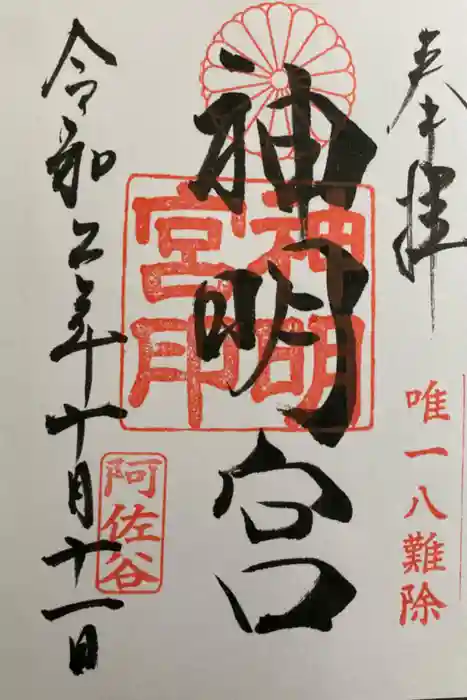 奉拝
唯一八難除
神明宮
神明宮印
阿佐谷
令和二年十月十一日